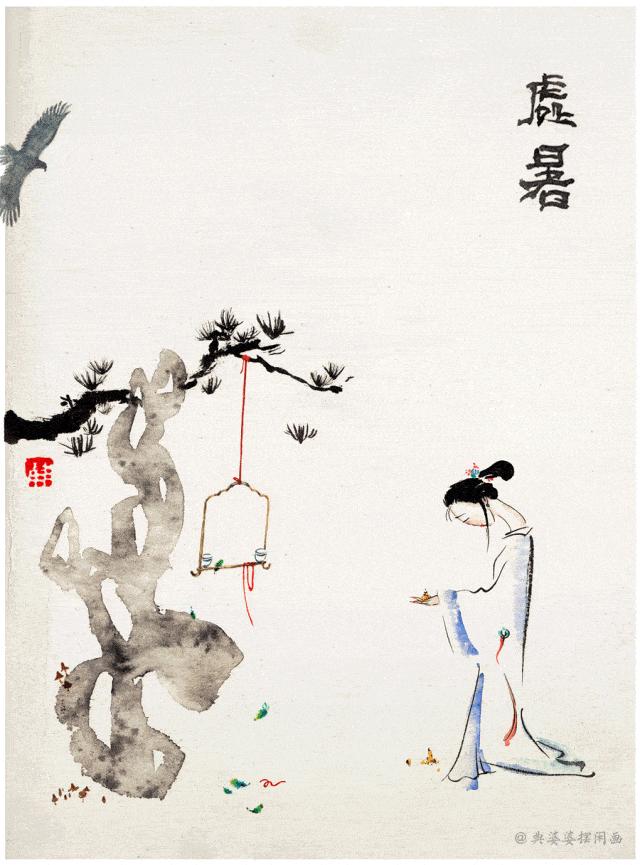 處暑
@典婆婆摆闲画